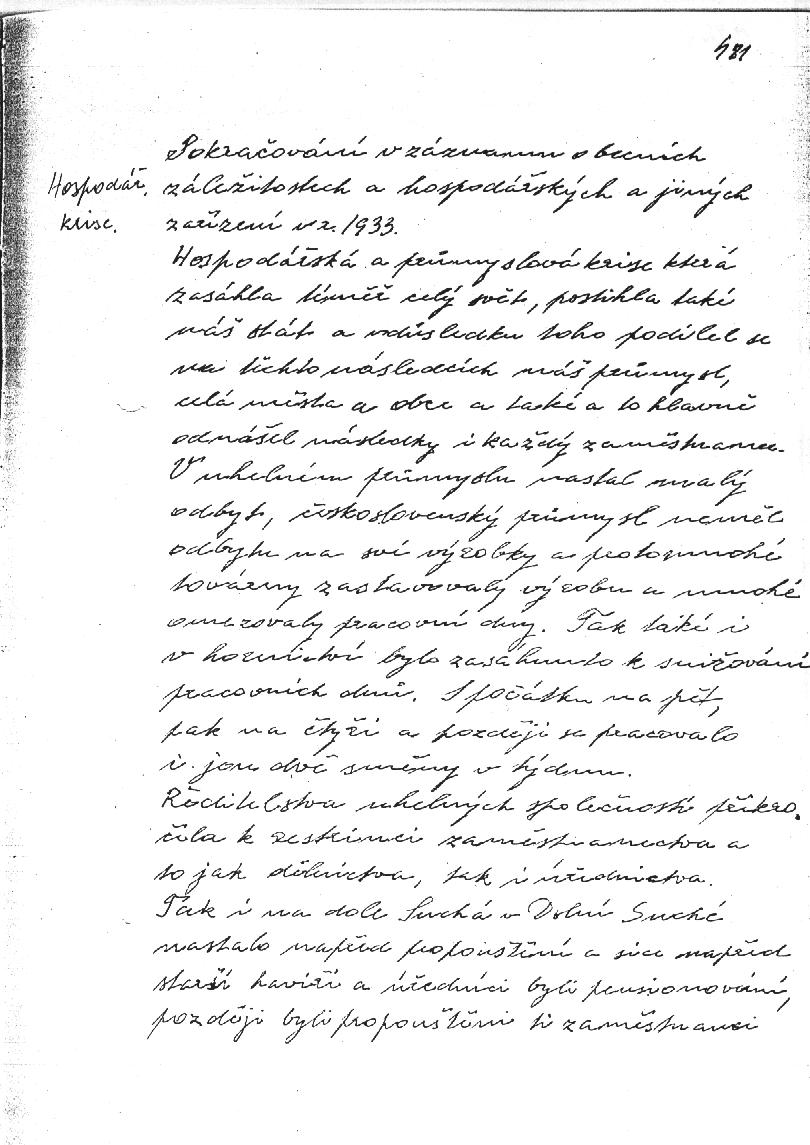 481
Pokračování v záznamu o obecních
Hospodář. záležitostech a hospodářských a jiných
krise. zařízení v r. 1933.
Hospodářská a průmyslová krise která
zasáhla téměř celý svět, postihla také
náš stát a vdůsledku toho podílel se
na těchto následcích náš průmysl,
celá města a obce a také a to hlavně
odnášel následky i každý zaměstnanec.
V uhelném průmyslu nastal malý
odbyt, československý průmysl neměl
odbytu na své výrobky a proto mnohé
továrny zastavovaly výrobu a mnohé
omezovaly pracovní dny. Tak také i
v hornictví bylo zasáhnuto k snižování
pracovních dnů. Spočátku na pět,
pak na čtyři a později se pracovalo
i jen dvě směny v týdnu.
Ředitelstva uhelných společností přikro-
čila k restrinci zaměstnanectva a
to jak dělnictva, tak i úřednictva.
Tak i na dole Suchá v Dolní Suché
nastalo napřed propouštění a sice napřed
starší havíři a úředníci byli pensionováni,
později byli propouštěni ti zaměstnanci